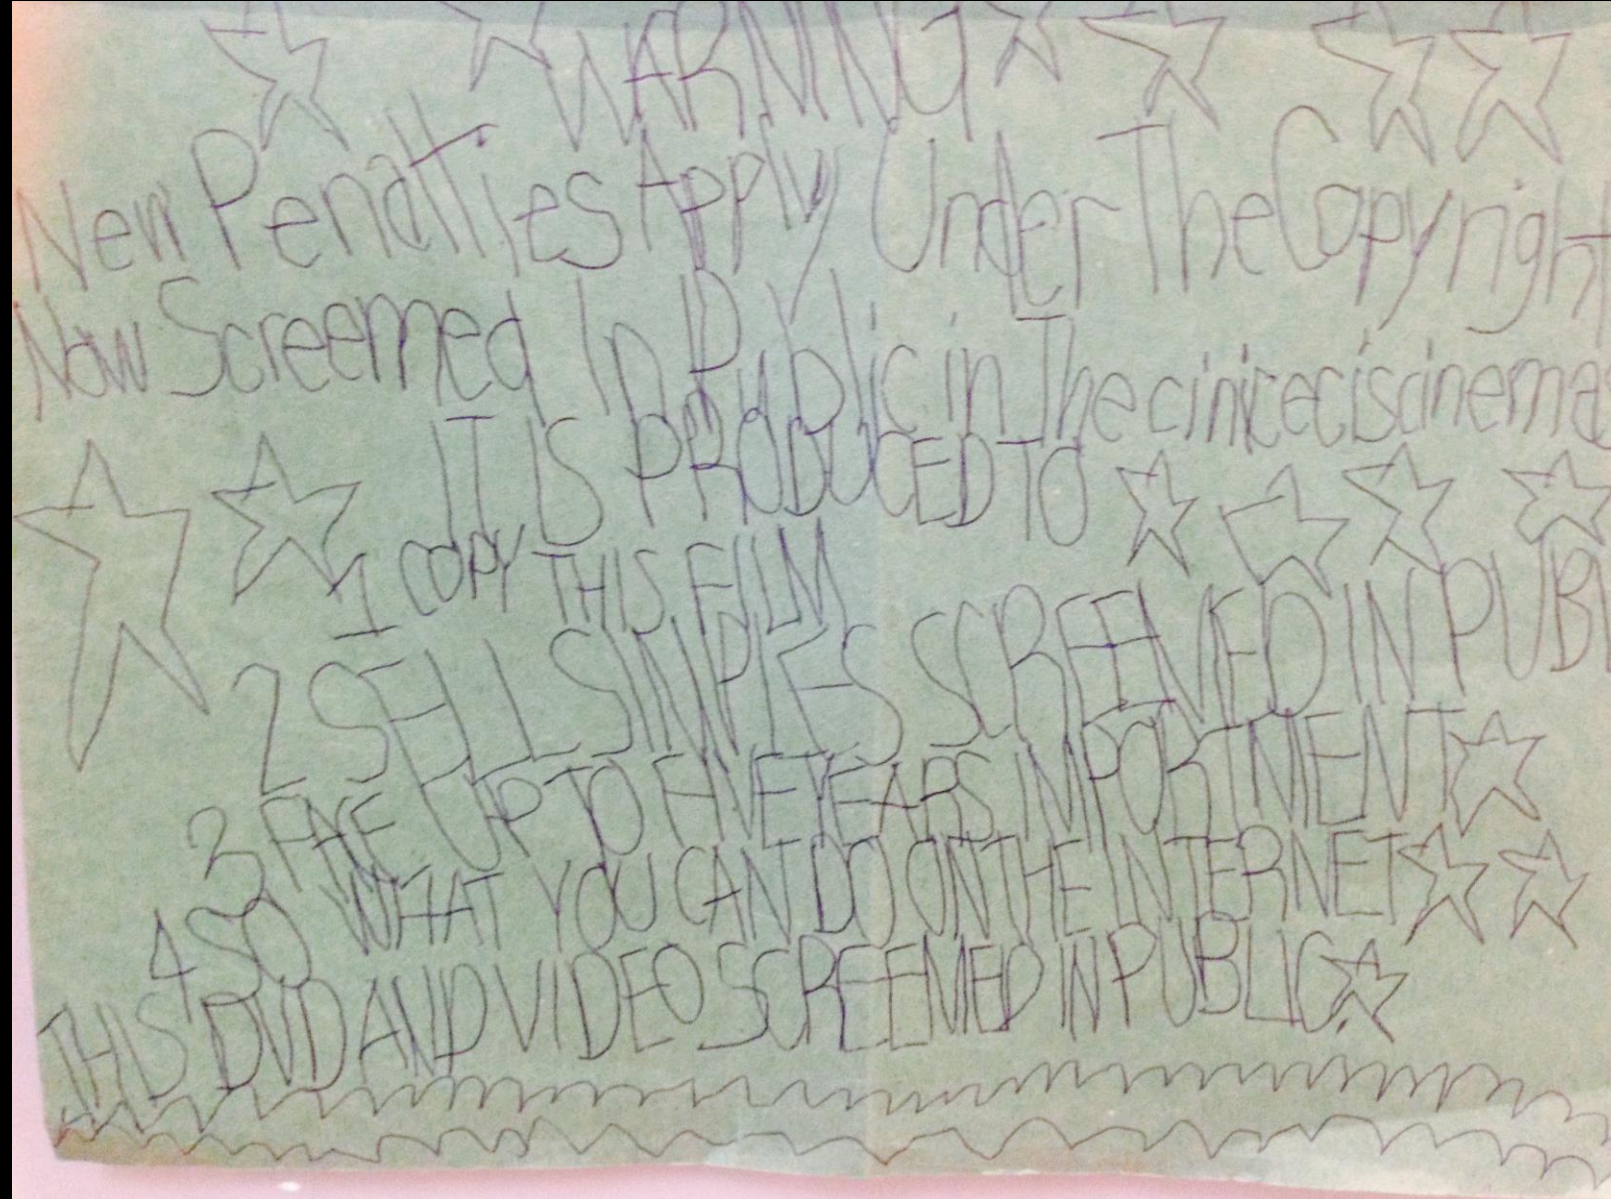 WARNING
New Penalties Apply Under The Copyright
Now Screemed In Public in The cinicecis cinemas
IT IS PRODUCED TO
1 COPY THIS FILM
2 SELL SIMPLES SCREEMED IN PUBL
3 FACE UP TO FIVE YEARS IMPORTMENT
4 SO WHAT YOU CAN DO ON THE INTERNET
THIS DVD AND VIDEO SCREEMED IN PUBLIC